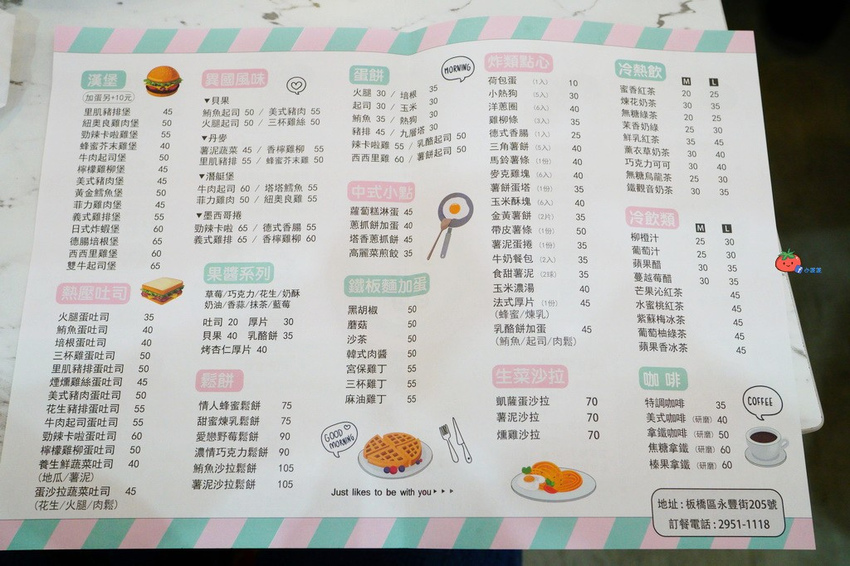 漢堡
加蛋另+10元
里肌豬排堡 45
紐奧良雞肉堡 50
勁辣卡啦雞堡 55
蜂蜜芥末雞堡 40
牛肉起司堡 50
檸檬雞柳堡 50
美式豬肉堡 45
黃金鱈魚堡 50
菲力雞肉堡 45
義式雞排堡 55
日式炸蝦堡 60
德腸培根堡 65
西西里雞堡 60
雙牛起司堡 65
熱壓吐司
火腿蛋吐司 35
鮪魚蛋吐司 40
培根蛋吐司 40
三杯雞蛋吐司 45
里肌豬蛋吐司 50
煙燻雞絲蛋吐司 45
美式豬肉蛋吐司 50
花生豬排蛋吐司 55
牛肉起司蛋吐司 55
勁辣卡啦蛋吐司 60
檸檬雞柳蛋吐司 50
養生鮮蔬菜吐司 40
(地瓜/薯泥)
蛋沙拉蔬菜吐司 45
(花生/火腿/肉鬆)
異國風味
▼貝果
鮪魚起司 50 / 美式豬肉 55
火腿起司 50 / 三杯雞絲 50
▼丹麥
薯泥蔬菜 45 / 香檸雞柳 55
里肌豬排 55 / 蜂蜜芥末雞 50
▼潛艇堡
牛肉起司 60 / 塔塔鱈魚 55
菲力雞肉 50 / 紐奧良雞 55
▼墨西哥捲
勁辣卡啦 65 / 德式香腸 55
義式雞排 65 / 香檸雞柳 60
果醬系列
草莓/巧克力/花生/奶酥
奶油/香蒜/抹茶/藍莓
吐司 20 厚片 30
貝果 40 乳酪餅 35
烤杏仁厚片 40
鬆餅
情人蜂蜜鬆餅 75
甜蜜煉乳鬆餅 75
愛戀野莓鬆餅 90
濃情巧克力鬆餅 90
鮪魚沙拉鬆餅 105
薯泥沙拉鬆餅 105
蛋餅
MORNING
火腿 30 / 培根 35
起司 30 / 玉米 30
鮪魚 35 / 熱狗 30
豬排 45 / 九層塔 30
辣卡啦雞 55 / 乳酪起司 50
西西里雞 60 / 薯餅起司 50
中式小點
蘿蔔糕淋蛋 45
蔥抓餅加蛋 40
塔香蔥抓餅 45
高麗菜煎餃 35
鐵板麵加蛋
黑胡椒 50
蘑菇 50
沙茶 50
韓式肉醬 50
宮保雞丁 55
三杯雞丁 55
麻油雞丁 55
GOOD MORNING
Just likes to be with you
炸類點心
荷包蛋 (1入) 10
小熱狗 (5入) 30
洋蔥圈 (6入) 40
雞柳條 (3入) 35
德式香腸 (1入) 25
三角薯餅 (5入) 40
馬鈴薯條 (1份) 40
麥克雞塊 (6入) 40
薯餅蛋塔 (1份) 35
玉米酥塊 (6入) 40
金黃薯餅 (2片) 35
帶皮薯條 (1份) 50
薯泥蛋捲 (1份) 35
牛奶餐包 (2入) 35
食甜薯泥 (2球) 35
玉米濃湯 40
法式厚片 (1份) 45
(蜂蜜/煉乳)
乳酪餅加蛋 45
(鮪魚/起司/肉鬆)
生菜沙拉
凱薩蛋沙拉 70
薯泥沙拉 70
燻雞沙拉 70
冷熱飲 M L
蜜香紅茶 20 25
煉花奶茶 30 35
無糖綠茶 20 25
茉香奶綠 25 30
鮮乳紅茶 35 45
薰衣草奶茶 30 40
巧克力可可 30 40
無糖烏龍茶 25 30
鐵觀音奶茶 30 35
冷飲類 M L
柳橙汁 25 30
葡萄汁 25 30
蘋果醋 30 35
蔓越莓醋 30 35
芒果沁紅茶 45
水蜜桃紅茶 45
紫蘇梅冰茶 45
葡萄柚綠茶 45
蘋果香冰茶 45
咖啡
COFFEE
特調咖啡 35
美式咖啡 (研磨) 40
拿鐵咖啡 (研磨) 50
焦糖拿鐵 (研磨) 60
榛果拿鐵 (研磨) 60
地址：板橋區永豐街205號
訂餐電話：2951-1118